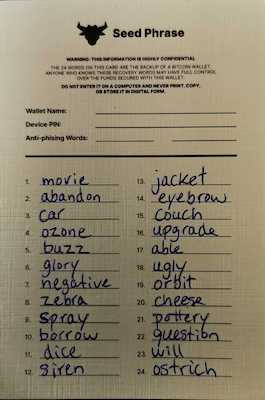 Seed Phrase
WARNING: THIS INFORMATION IS HIGHLY CONFIDENTIAL
THE 24 WORDS ON THIS CARD ARE THE BACKUP OF A BITCOIN WALLET.
ANYONE WHO KNOWS THESE RECOVERY WORDS MAY HAVE FULL CONTROL
OVER THE FUNDS SECURED WITH THIS WALLET.
DO NOT ENTER IT ON A COMPUTER AND NEVER PRINT, COPY,
OR STORE IT IN DIGITAL FORM.
Wallet Name:
Device PIN:
Anti-phising Words:
1. movie
2. abandon
3. car
4. ozone
5. buzz
6. glory
7. negative
8. zebra
9. spray
10. borrow
11. dice
12. siren
13. jacket
14. eyebrow
15. couch
16. upgrade
17. able
18. ugly
19. orbit
20. cheese
21. pottery
22. question
23. will
24. ostrich